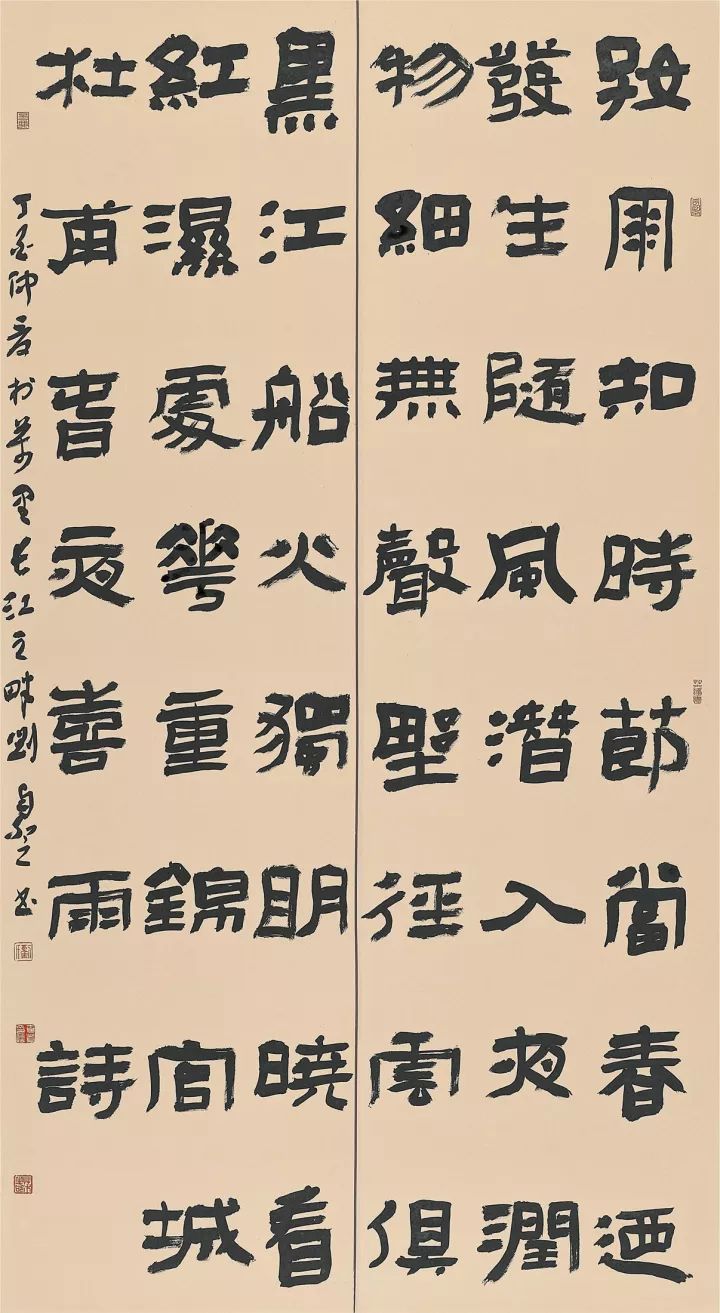 好雨知時節當春迺
發生隨風潛入夜潤
物細無聲野徑雲俱
黑江船火獨明曉看
紅濕處華重錦官城
杜甫春夜喜雨詩
丁酉仲夏於萬里長江之畔劉書